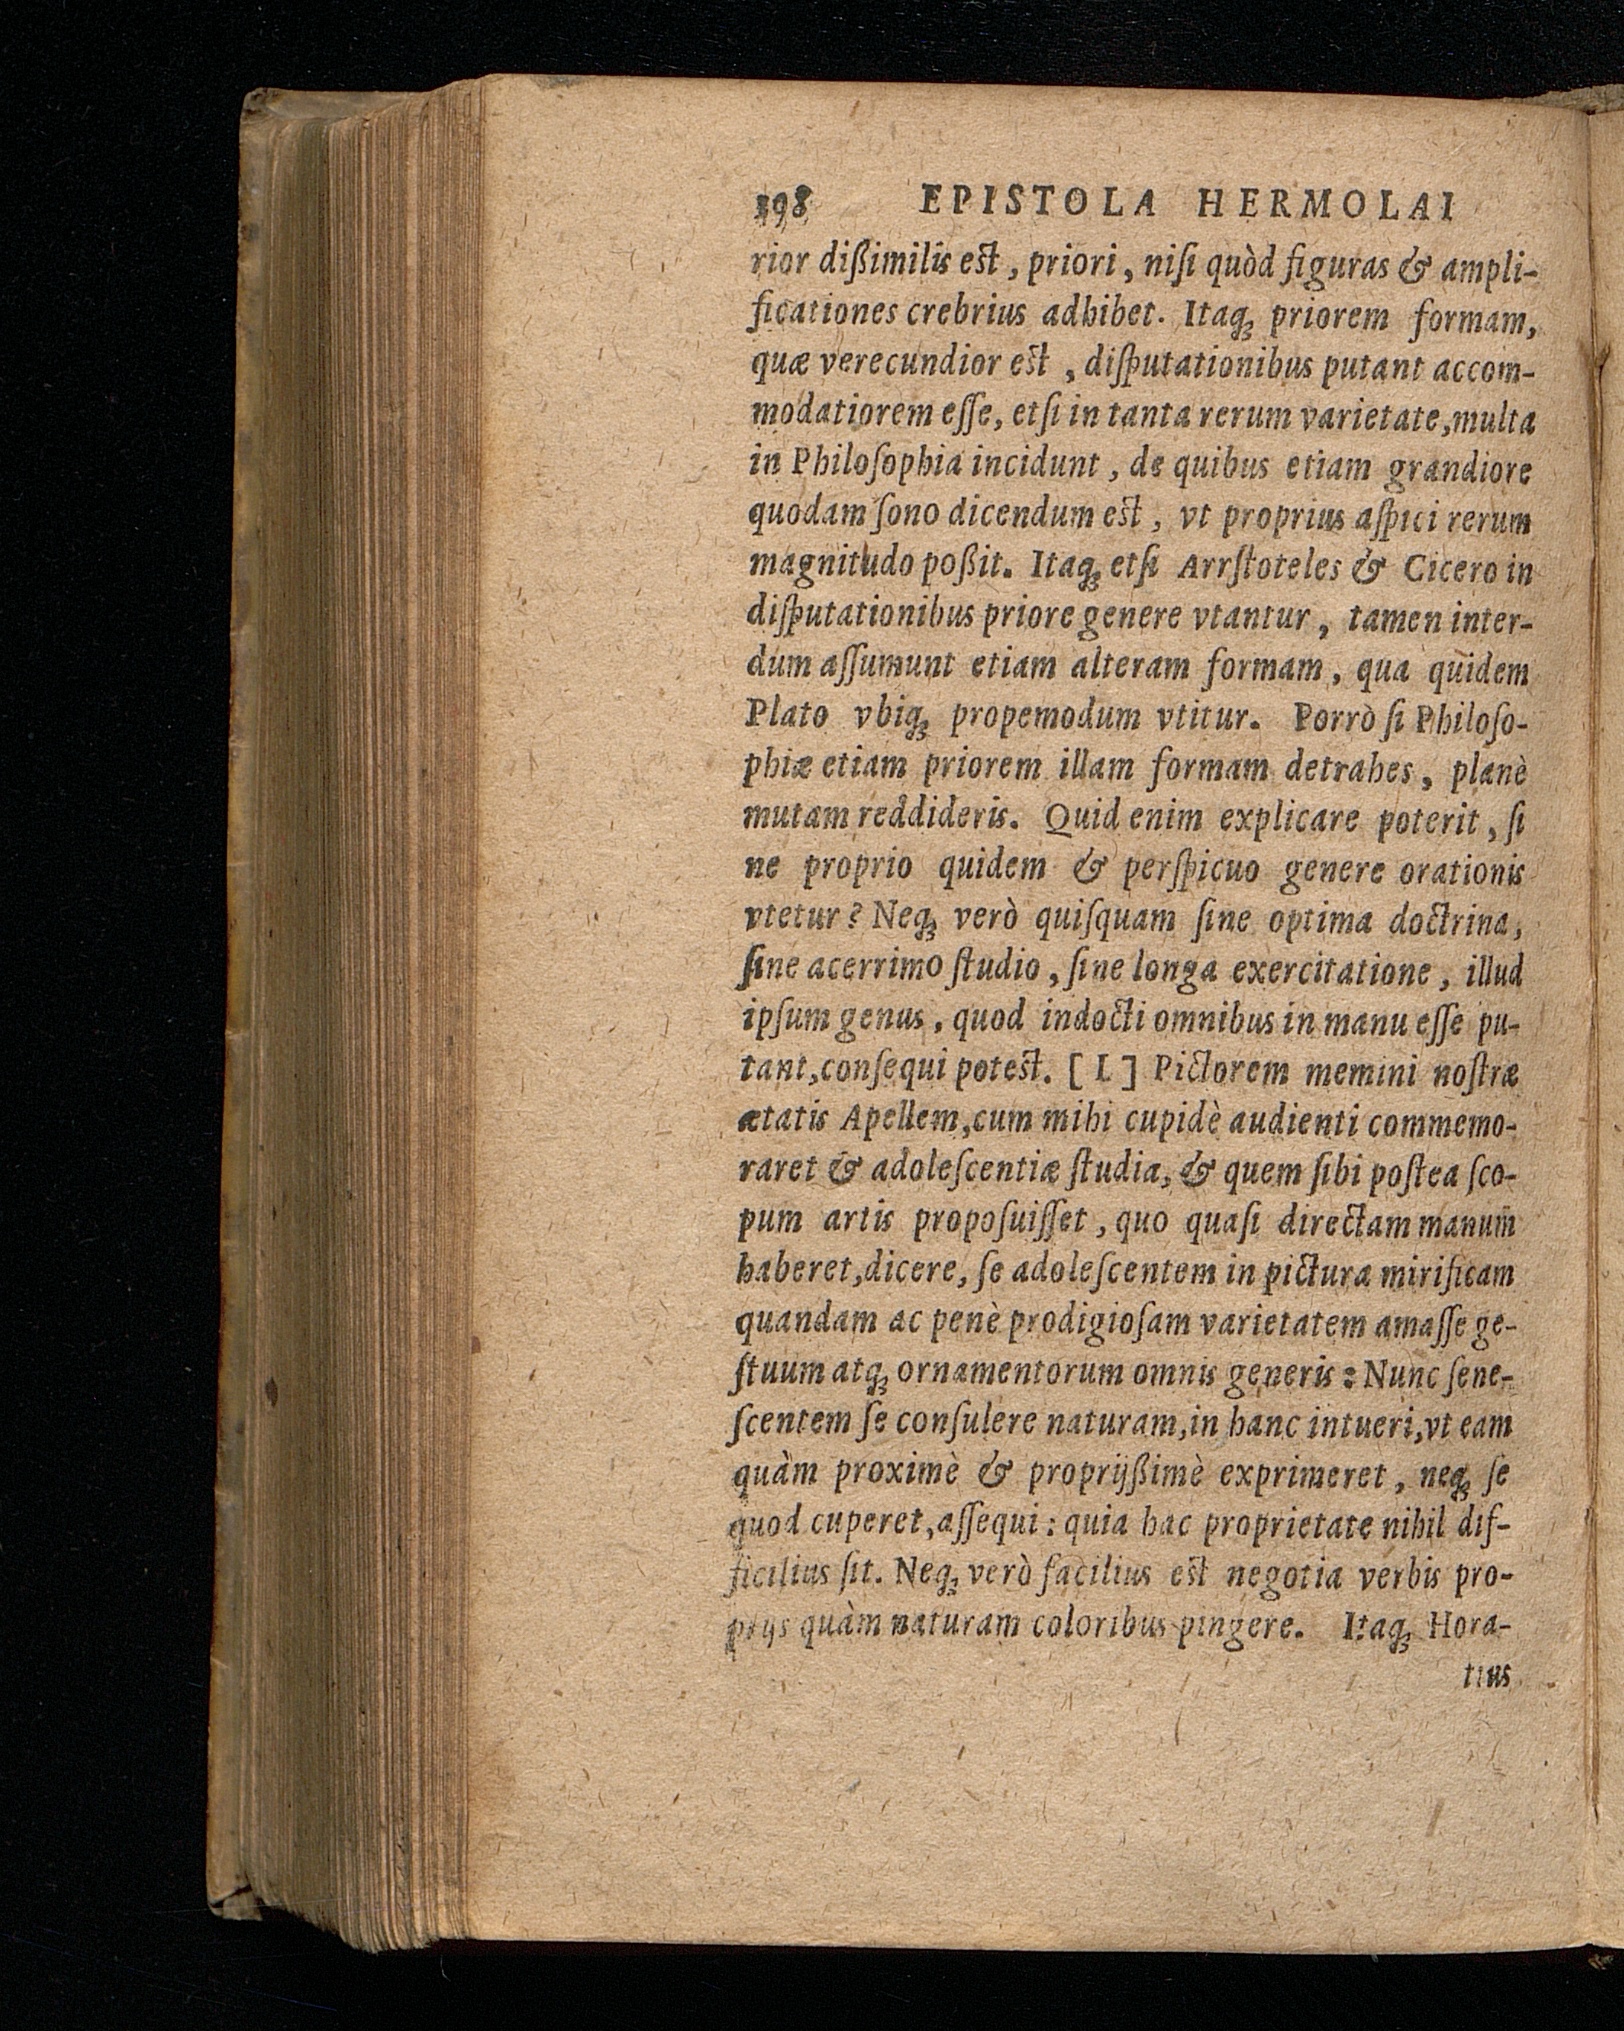 398 EPISTOLA HERMOLAI
rior dißimilis est, priori, niſi quòd figuras & ampli-
ficationes crebrius adhibet. Itaqꝫ priorem formam,
quæ verecundior est, diſputationibus putant accom-
modatiorem eſſe, etſi in tanta rerum varietate, multa
in Philoſophia incidunt, de quibus etiam grandiore
quodam ſono dicendum est, vt proprius aſpici rerum
magnitudo poßit. Itaqꝫ etſi Arrſtoteles & Cicero in
diſputationibus priore genere vtantur, tamen inter-
dum aſſumunt etiam alteram formam, qua quidem
Plato vbiqꝫ propemodum vtitur. Porrò ſi Philoſo-
phiæ etiam priorem illam formam detrahes, planè
mutam reddideris. Quid enim explicare poterit, ſi
ne proprio quidem & perſpicuo genere orationis
vtetur? Neqꝫ verò quiſquam ſine optima doctrina,
ſine acerrimo ſtudio, ſine longa exercitatione, illud
ipſum genus, quod indocti omnibus in manu eſſe pu-
tant, conſequi potest. [ L ] Pictorem memini noſtræ
ætatis Apellem, cum mihi cupidè audienti commemo-
raret & adoleſcentiæ ſtudia, & quem ſibi poſtea ſco-
pum artis propoſuiſſet, quo quaſi directam manum
haberet, dicere, ſe adoleſcentem in pictura mirificam
quandam ac penè prodigioſam varietatem amaſſe ge-
ſtuum atqꝫ ornamentorum omnis generis: Nunc ſene-
ſcentem ſe conſulere naturam, in hanc intueri, vt eam
quàm proximè & proprijßimè exprimeret, neqꝫ ſe
quod cuperet, aſſequi: quia hac proprietate nihil dif-
ficilius ſit. Neqꝫ verò facilius est negotia verbis pro-
prijs quàm naturam coloribus pingere. Itaqꝫ Hora-
tius